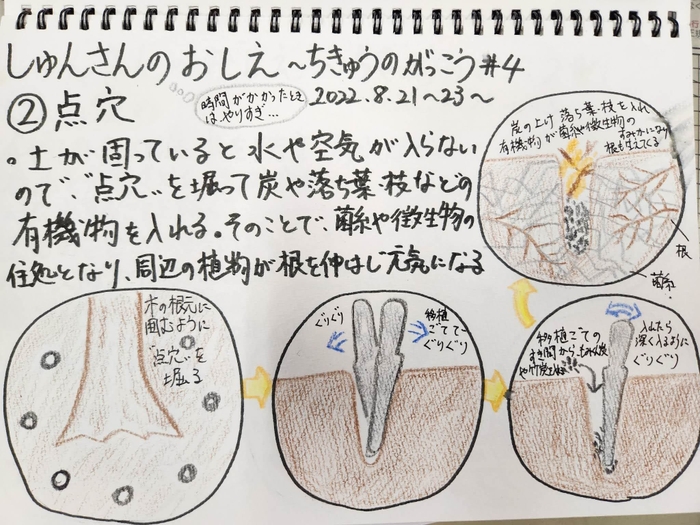 しゅんさんのおしえ～ちきゅうのがっこう#4
2022.8.21～23～
②点穴
時間がかかったとき
はやりすぎ…
。土が固っていると水や空気が入らない
ので、"点穴"を掘って炭や落ち葉・枝などの
有機物を入れる。そのことで、菌糸や微生物の
住処となり、周辺の植物が根を伸はし元気になる
木の根元に
囲むように
"点穴"を
掘る
ぐりぐり
移植
ごてで
ぐりぐり
移植ごての
すき間から、もみがら炭
や竹炭を
入れたら
深く入るように
ぐりぐり
炭の上に落ち葉、枝を入れ
有機物が菌糸や微生物の
すみかになり
根も生えてくる
根
菌糸